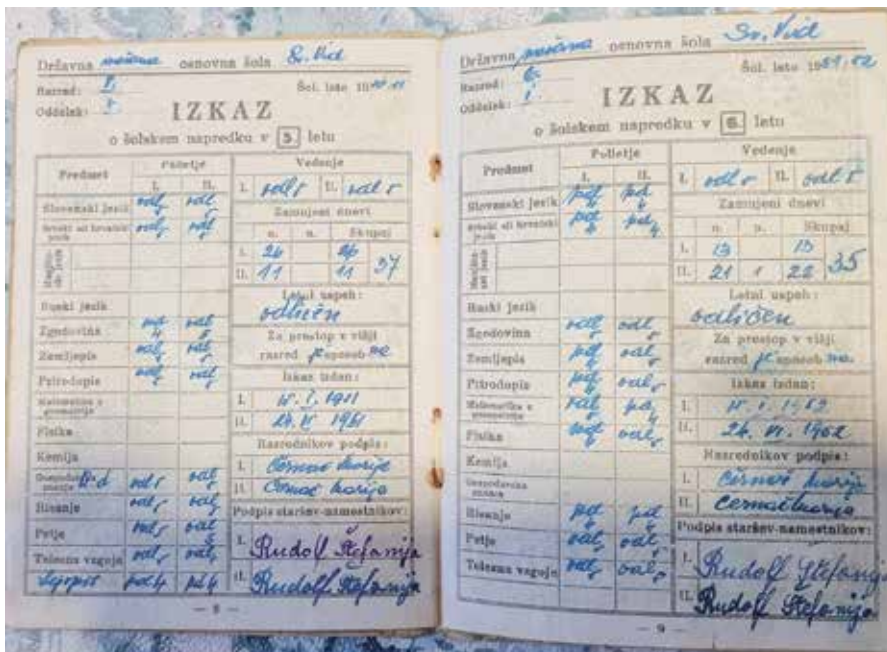 Državna osnovna šola Sv. Vid
Razred: 5.
Oddelek: Šol. leto 19
IZKAZ
o šolskem napredku v 5. letu
Predmet
Polletje
I. II.
Slovenski jezik odl 5 odl 5
Srbski ali hrvatski jezik odl 5 odl 5
Ruski jezik
Zgodovina pd 4 odl 5
Zemljepis odl 5 odl 5
Prirodopis odl 5 odl 5
Matematika z geometrijo
Fizika
Kemija
Gospodinjska znanja odl 5 odl 5
Risanje odl 5 odl 5
Petje odl 5 odl 5
Telesna vzgoja odl 5 odl 5
Lepopis pd 4 pd 4
Vedenje
I. odl 5 II. odl 5
Zamujeni dnevi
o. n. Skupaj
I. 26 26
II. 11 11 37
Letni uspeh:
odličen
Za prestop v višji
razred je sposobna
Izkaz izdan:
I.
II. 1961
Razrednikov podpis:
I. Černač Marija
II. Černač Marija
Podpis staršev-namestnikov:
I. Rudolf Štefanija
II. Rudolf Štefanija
— 8 —
Državna osnovna šola Sv. Vid
Razred: 6.
Oddelek: Šol. leto 1961/62
IZKAZ
o šolskem napredku v 6. letu
Predmet
Polletje
I. II.
Slovenski jezik pd 4 pd 4
Srbski ali hrvatski jezik pd 4 pd 4
Ruski jezik
Zgodovina odl 5 odl 5
Zemljepis pd 4 odl 5
Prirodopis pd 4 odl 5
Matematika z geometrijo odl 5 pd 4
Fizika odl 5
Kemija
Gospodinjska znanja
Risanje pd 4 pd 4
Petje odl 5 odl 5
Telesna vzgoja odl 5 odl 5
Vedenje
I. odl 5 II. odl 5
Zamujeni dnevi
o. n. Skupaj
I. 13 13
II. 21 1 22 35
Letni uspeh:
odličen
Za prestop v višji
razred je sposobna
Izkaz izdan:
I.
II. 24. VI. 1962
Razrednikov podpis:
I. Černač Marija
II. Černač Marija
Podpis staršev-namestnikov:
I. Rudolf Štefanija
II. Rudolf Štefanija
— 9 —